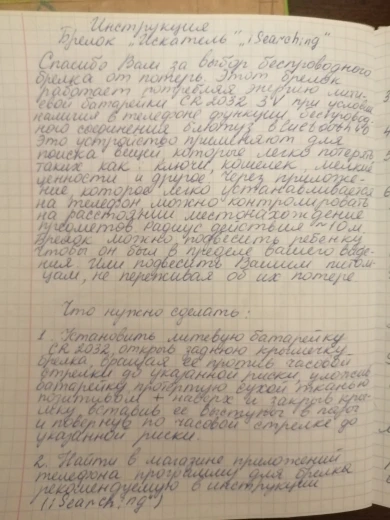 Инструкция
Брелок „Искатель" „iSearching"
Спасибо Вам за выбор беспроводного
брелка от потерь. Этот брелок
работает потребляя энергию лити-
евой батарейки CR 2032 3V при условии
наличия в телефоне функции, беспровод-
ного соединения блютуз
Это устройство применяют для
поиска вещей, которые легко потерять
таких как: ключи, кошелек, мелкие
ценности и другое. Через приложе-
ние, которое легко устанавливается
на телефон, можно контролировать
на расстоянии местонахождение
предметов. Радиус действия 1-10м.
Брелок можно подвесить ребенку
чтобы он был в пределе вашего виде-
ния. Или подвесить Вашим питом-
цам, не переживая об их потере
Что нужно сделать:
1. Установить литевую батарейку
CR 2032, открыв заднюю крышечку
брелка, вращая её против часовой
стрелки до указанной риски, уложив
батарейку, протёртую сухой тканью
позитивом + наверх и закрыв кры-
шечку, вставив её выступы в пазы
и повернув по часовой стрелке до
указанной риски.
2. Найти в магазине приложений
телефона программу для брелка
рекомендуемую в инструкции
("iSearching")